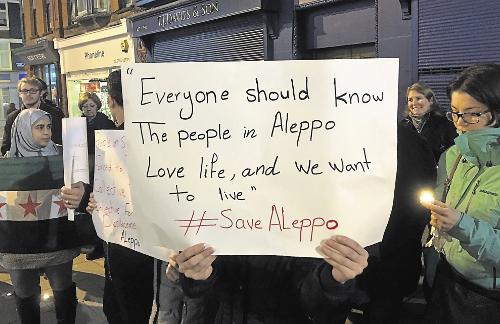 Phonafine
T.J. DAVIS & SON
"Everyone should know
The people in Aleppo
Love life, and we want
to live"
#Save Aleppo
Aleppo